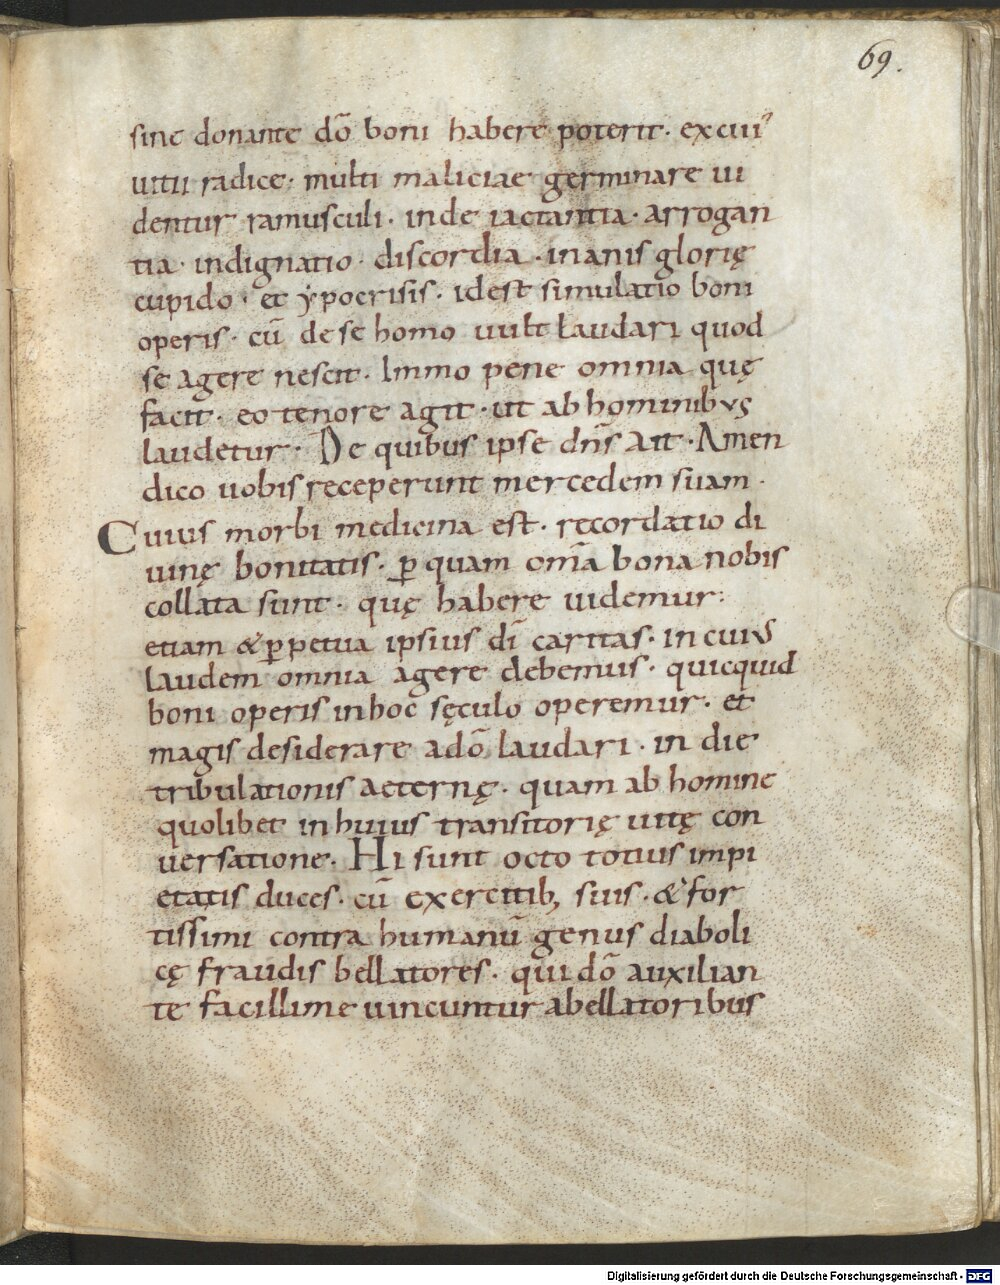 69.
sine donante dō boni habere poterit · ex cuiꝰ
uitii radice · multi maliciae germinare ui
dentur ramusculi · inde iactantia · arrogan
tia · indignatio · discordia · inanis glorię
cupido · et ypocrisis · idest simulatio boni
operis · cū de se homo uult laudari quod
se agere nescit · Immo pene omnia quę
facit · eo tenore agit · ut ab hominibus
laudetur · De quibus ipse dn̄s ait · Amen
dico uobis receperunt mercedem suam ·
Cuius morbi medicina est · recordatio di
uinę bonitatis · ꝑ quam om̄a bona nobis
collata sunt · quę habere uidemur:
etiam & ꝑpetua ipsius dī caritas · in cuius
laudem omnia agere debemus · quicquid
boni operis in hoc sęculo operemur · et
magis desiderare a dō laudari · in die
tribulationis aeternę · quam ab homine
quolibet in huius transitorię uitę con
uersatione · Hi sunt octo totius impi
etatis duces · cū exercitib; suis · & for
tissimi contra humanū genus diaboli
cę fraudis bellatores · qui dō auxilian
te facillime uincuntur a bellatoribus
Digitalisierung gefördert durch die Deutsche Forschungsgemeinschaft - DFG